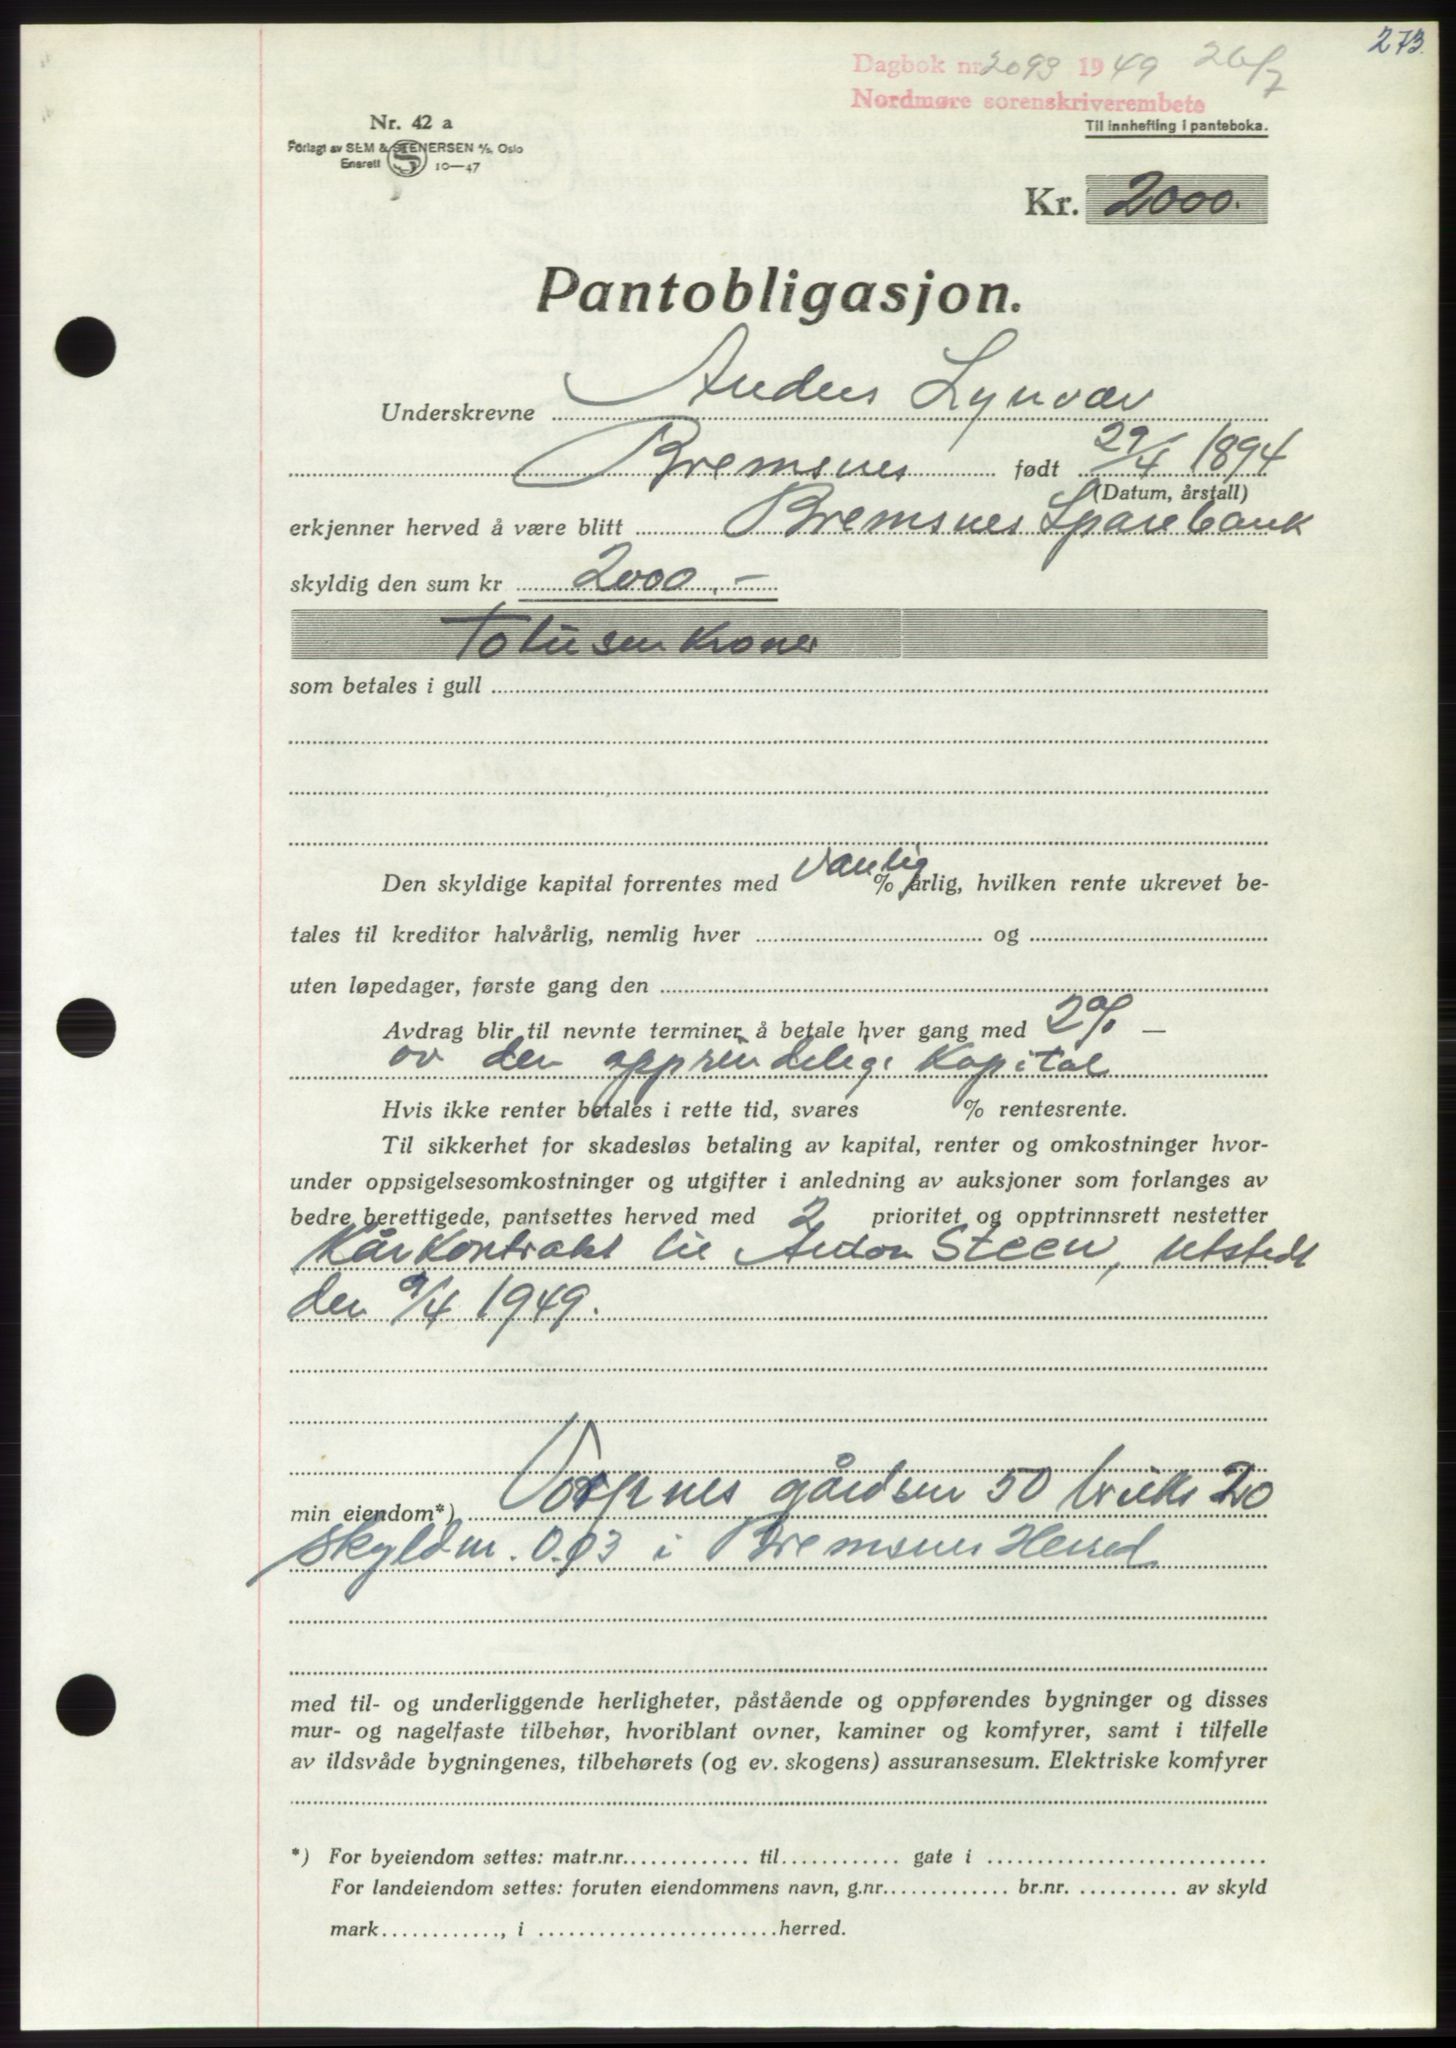 273.
Dagbok nr 2093 1949 26/7
Nordmøre sorenskriverembete
Til innhefting i panteboka.
Nr. 42 a
Forlagt av SEM & STENERSEN A/S, Oslo
Enerett S 10—47
Kr. 2000.
Pantobligasjon.
Underskrevne Anders Lynvær
Bremsnes født 29/4 1894
(Datum, årstall)
erkjenner herved å være blitt Bremsnes Sparebank
skyldig den sum kr 2000,-
Totusen kroner
som betales i gull
Den skyldige kapital forrentes med vanlig % årlig, hvilken rente ukrevet be-
tales til kreditor halvårlig, nemlig hver og
uten løpedager, første gang den
Avdrag blir til nevnte terminer å betale hver gang med 2% —
av den opprindelige Kapital
Hvis ikke renter betales i rette tid, svares % rentesrente.
Til sikkerhet for skadesløs betaling av kapital, renter og omkostninger hvor-
under oppsigelsesomkostninger og utgifter i anledning av auksjoner som forlanges av
bedre berettigede, pantsettes herved med 2 prioritet og opptrinnsrett nestetter
Kårkontrakt til Anton Steen, utstedt
den 9/4 1949.
min eiendom*) gårdsnr 50 bruks 20
skyldm. 0.03 i Bremsnes Herred
med til- og underliggende herligheter, påstående og oppførendes bygninger og disses
mur- og nagelfaste tilbehør, hvoriblant ovner, kaminer og komfyrer, samt i tilfelle
av ildsvåde bygningenes, tilbehørets (og ev. skogens) assuransesum. Elektriske komfyrer
*) For byeiendom settes: matr.nr. til gate i
For landeiendom settes: foruten eiendommens navn, g.nr. br.nr. av skyld
mark , i herred.